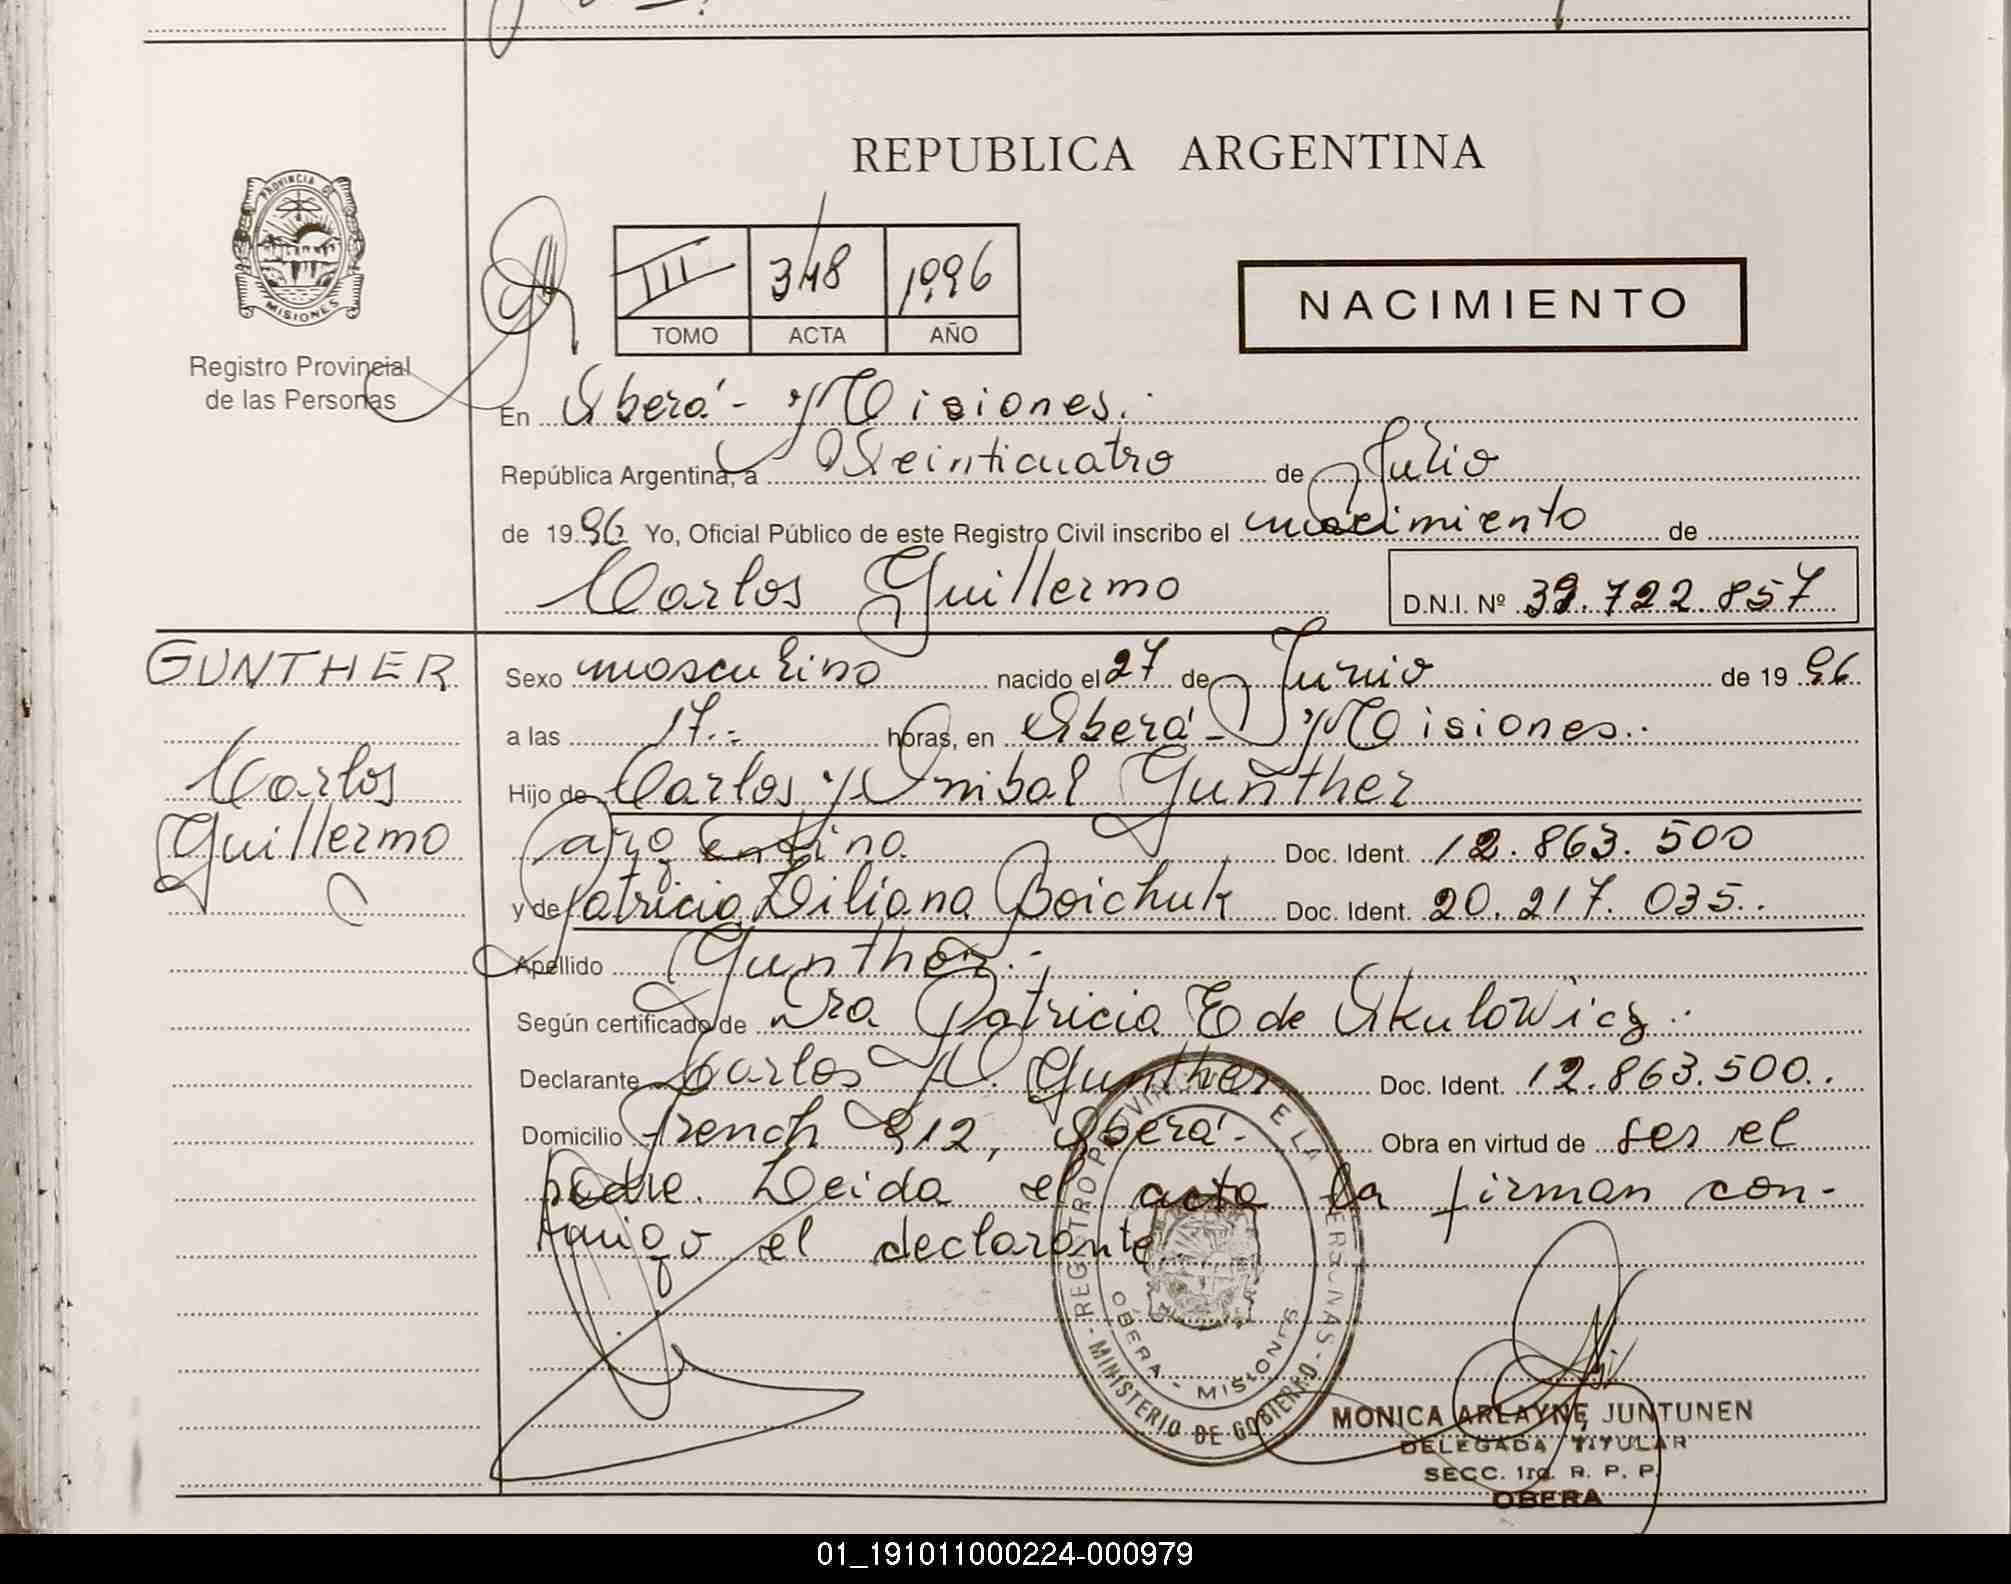 REPUBLICA ARGENTINA
PROVINCIA DE
MISIONES
Registro Provincial
de las Personas
III 348 1996
TOMO ACTA AÑO
NACIMIENTO
En Oberá - Misiones.
República Argentina, a Veinticuatro de Julio
de 1996 Yo, Oficial Público de este Registro Civil inscribo el nacimiento de
Carlos Guillermo D.N.I. Nº 39.722.857
GUNTHER
Carlos
Guillermo
Sexo masculino nacido el 27 de Junio de 1996
a las 17.- horas, en Oberá - Misiones.
Hijo de Carlos Anibal Gunther
argentino Doc. Ident. 12.863.500
y de Patricia Liliana Boichuk Doc. Ident. 20.217.035.
Apellido Gunther.-
Según certificado de Dra Patricia E de Akulowicz.
Declarante Carlos A. Gunther Doc. Ident. 12.863.500.
Domicilio French 912, Oberá - Obra en virtud de ser el
padre. Leida el acta la firman con-
migo el declarante
REGISTRO PROVINCIAL DE LAS PERSONAS
- MINISTERIO DE GOBIERNO -
OBERA - MISIONES
MONICA ARLAYNE JUNTUNEN
DELEGADA TITULAR
SECC. 1ra. R. P. P.
OBERA
01_191011000224-000979